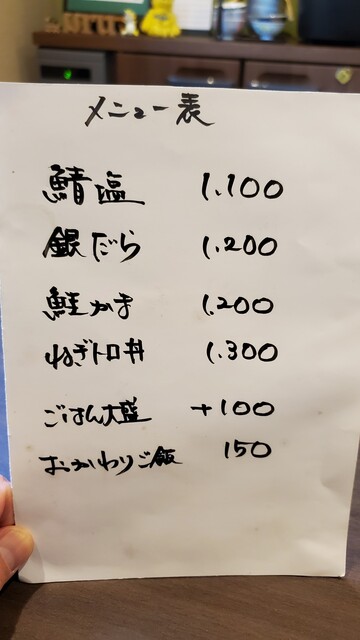 メニュー表
鯖塩 1.100
銀だら 1.200
鮭かま 1.200
ねぎトロ丼 1.300
ごはん大盛 +100
おかわりご飯 150